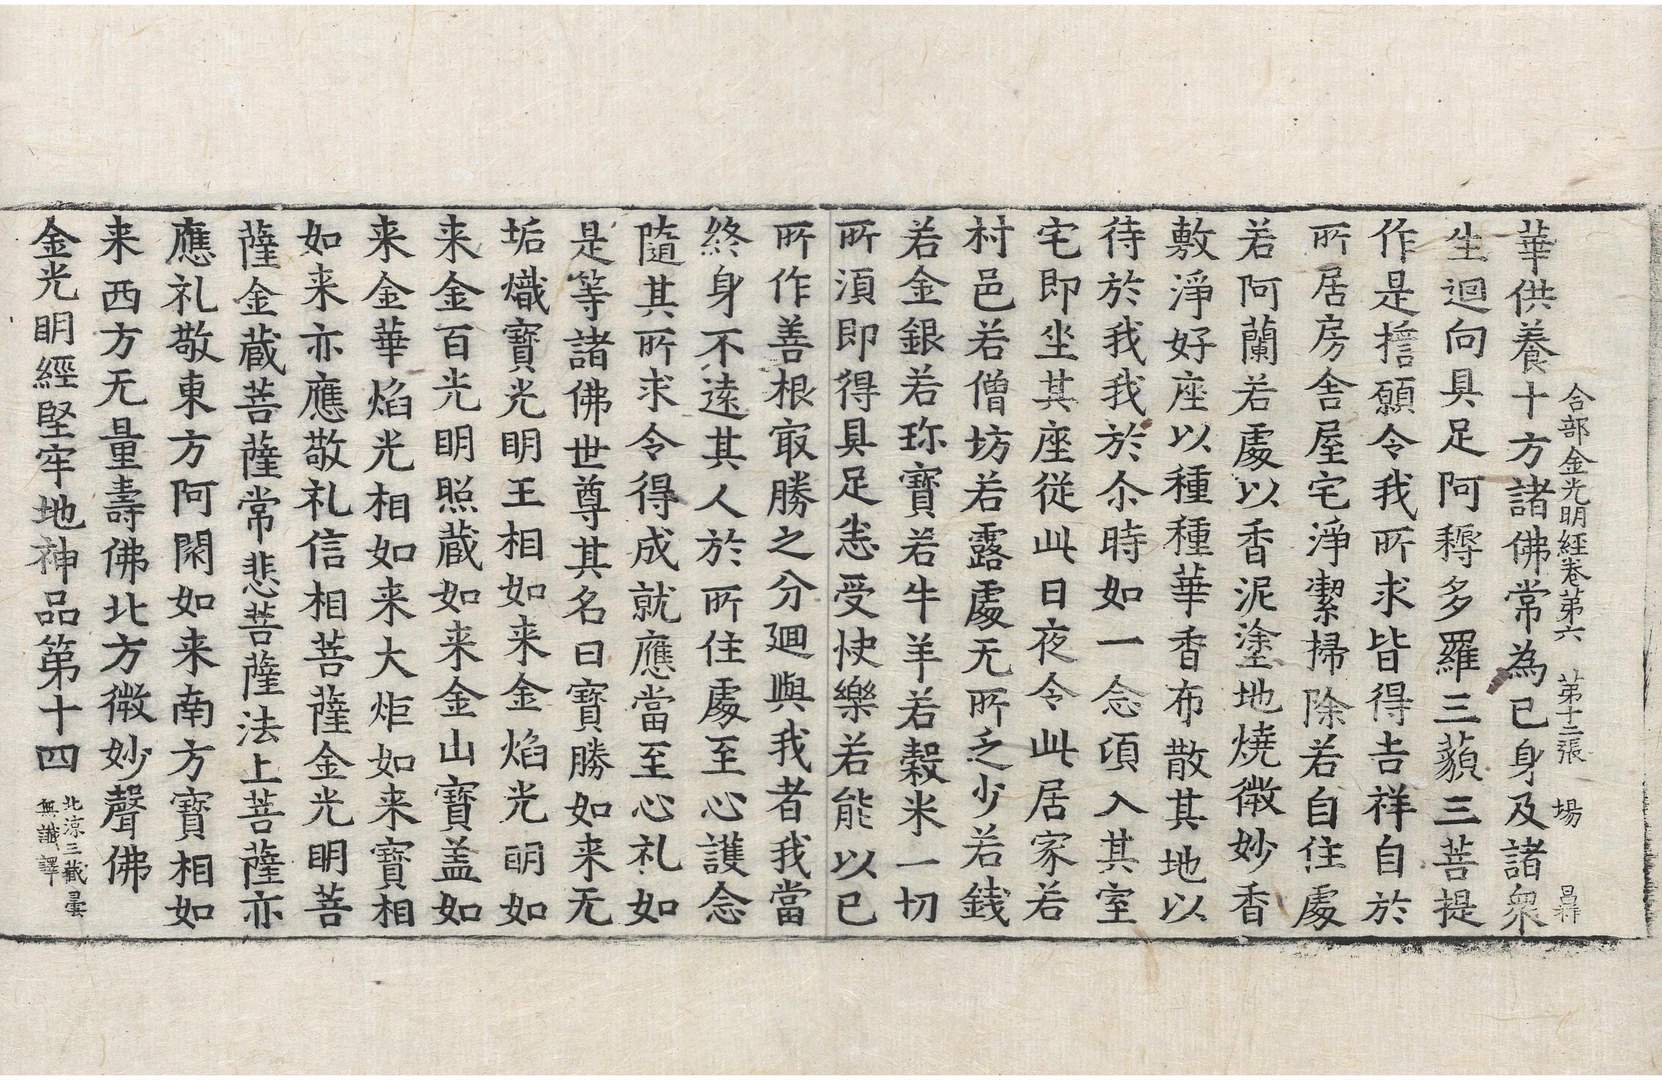 合部金光明経卷第六 第十二張 場
華供養十方諸佛常為已身及諸衆
生迴向具足阿耨多羅三藐三菩提
作是擔願令我所求皆得吉祥自於
所居房舍屋宅淨潔掃除若自住處
若阿蘭若處以香泥塗地燒微妙香
敷淨好座以種種華香布散其地以
待於我我於尒時如一念頃入其室
宅即坐其座從此日夜令此居家若
村邑若僧坊若露處无所乏少若錢
若金銀若珎寶若牛羊若穀米一切
所湏即得具足恚受快樂若能以已
所作善根㝡勝之分迴與我者我當
終身不遠其人於所住處至心護念
隨其所求令得成就應當至心礼如
是等諸佛世尊其名曰寶勝如来无
垢熾寶光明王相如来金焰光明如
来金百光明照蔵如来金山寶盖如
来金華焰光相如来大炬如来寶相
如来亦應敬礼信相菩薩金光明菩
薩金蔵菩薩常悲菩薩法上菩薩亦
應礼敬東方阿閦如来南方寶相如
来西方无量壽佛北方微妙聲佛
金光明經堅牢地神品第十四
北涼三蔵曇
無讖譯